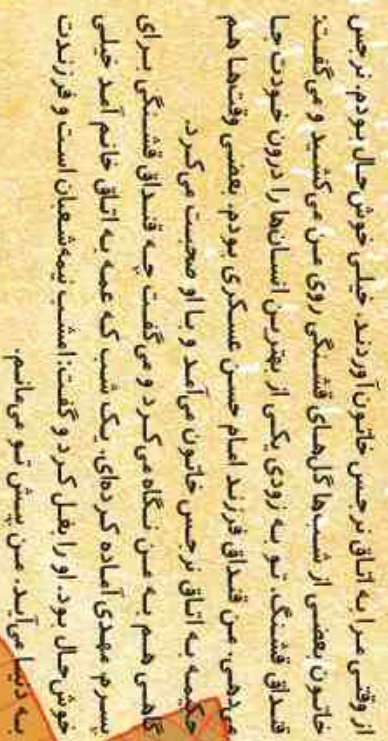 از وقتی مرا به اتاق نرجس خاتون آوردند، خیلی خوش‌حال بودم. نرجس
خاتون بعضی از شب‌ها گل‌های قشنگی روی من می‌کشید و می‌گفت:
قنداق قشنگ، تو به زودی یکی از بهترین انسان‌ها را درون خودت جا
می‌دهی. من قنداق فرزند امام حسن عسکری بودم. بعضی وقت‌ها هم
حکیمه به اتاق نرجس خاتون می‌آمد و با او صحبت می‌کرد.
گاهی هم به من نگاه می‌کرد و می‌گفت چه قنداق قشنگی برای
پسرم مهدی آماده کرده‌ای. یک شب که عمه به اتاق خانم آمد خیلی
خوش‌حال بود. او را بغل کرد و گفت: امشب نیمه‌شعبان است و فرزندت
به دنیا می‌آید. من پیش تو می‌مانم.